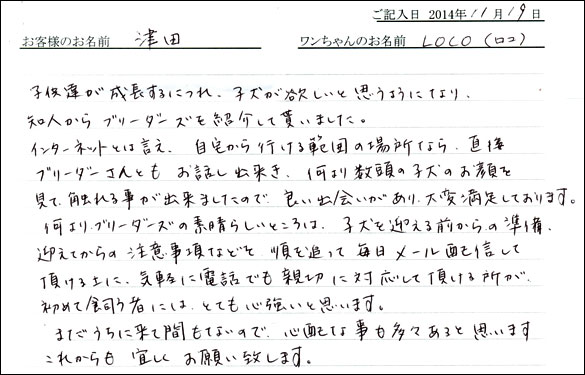 ご記入日 2014年11月19日
お客様のお名前 津田 ワンちゃんのお名前 LOCO (ロコ)
子供達が成長するにつれ、子犬が欲しいと思うようになり、
知人からブリーダーズを紹介して貰いました。
インターネットとは言え、自宅から行ける範囲の場所なら、直接
ブリーダーさんともお話し出来き、何より数頭の子犬のお顔を
見て、触れる事が出来ましたので、良い出会いがあり、大変満足しております。
何よりブリーダーズの素晴らしいところは、子犬を迎える前からの準備、
迎えてからの注意事項などを、順を追って毎日メール配信して
頂ける上に、気軽に電話でも親切に対応して頂ける所が、
初めて飼う者には、とても心強いと思います。
まだうちに来て間もないので、心配な事も多々あると思います
これからも宜しくお願い致します。